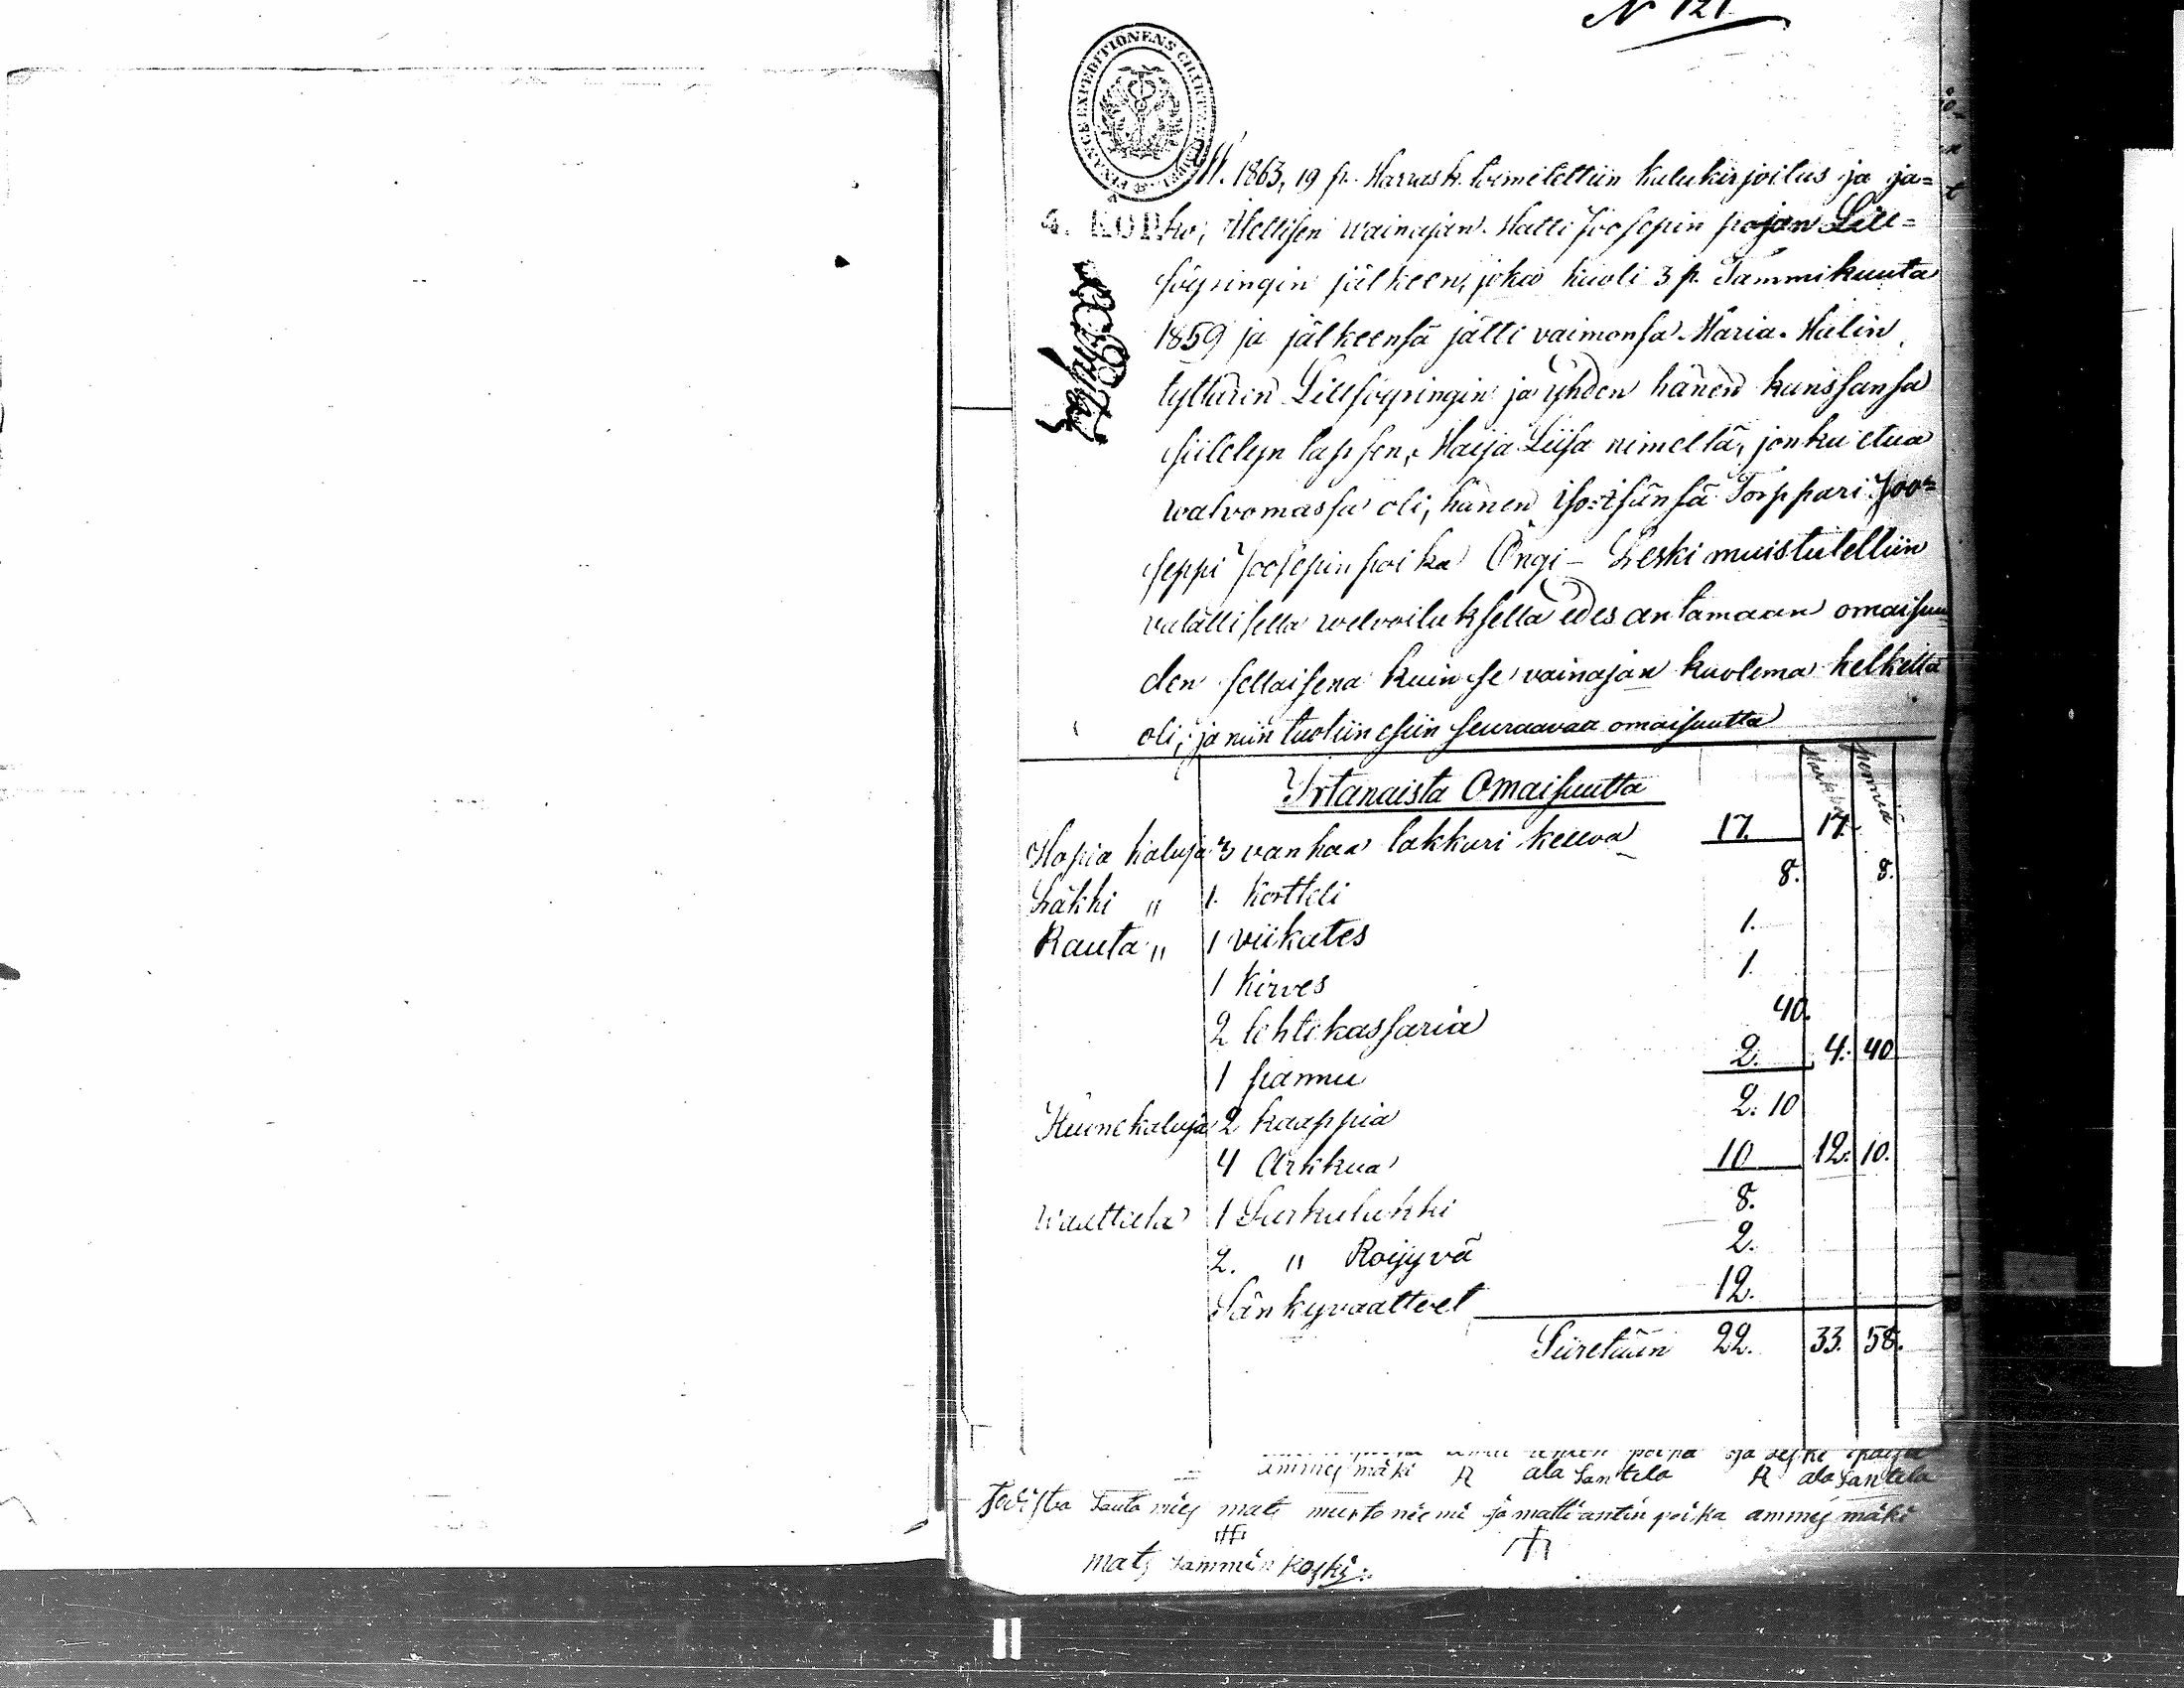 N 121.
FINANCE EXPEDITIONENS
4. KOP.
W. 1863, 19 p. Marrask. toimitettiin kalukirjoitus ja ja=
ko, Itellisen wainajan Matti Joosepin pojan Lill=
söyringin jälkeen, joka kuoli 3 p. Tammikuuta
1859 ja jälkeensä jätti vaimonsa Maria Matin
tyttären Lillsöyringin ja yhden hänen kanssansa
siitetyn lapsen, Maija Liisa nimeltä, jonka etua
walvomassa oli, hänen iso=isänsä Torppari Joo=
seppi Joosepin poika Ongi – Leski muistutettiin
valallisella welvoituksella edes antamaan omaisuu
den sellaisena kuin se vainajan kuolema hetkellä
oli, ja niin tuotiin esiin seuraavaa omaisuutta
Irtanaista Omaisuutta
Hopia kaluja 3 vanhaa lakkari kelloa 17. 17.
Läkki " 1. kortteli 8. 8.
Rauta " 1 viikates 1.
1 kirves 1.
2 lehtikassaria 40.
1 pannu 2. 4. 40
Huonekaluja 2 kaappia 2. 10
4 Arkkua 10 12. 10.
Waatteita 1 Surkutukki 8.
2. " Roijyvä 2.
Sänkyvaatteet 12.
Siiretään 22. 33. 58.
ammesmäki R ala Santela R ala Santela
Todista Lauta mies mati murtoniemi ja matti antin poika ammes mäki
mats Lammin koski.